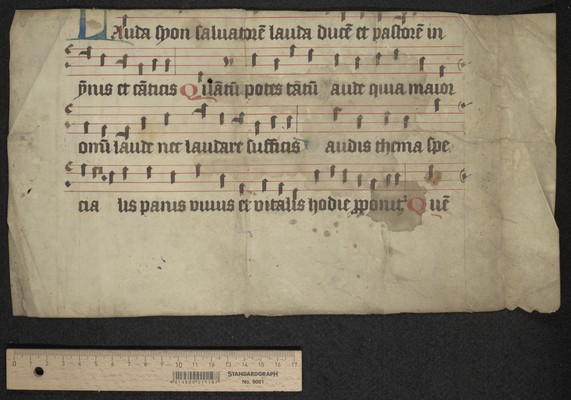 Lauda syon saluatorē lauda ducē et pastorē in
ȳnis et cāticis Quātū potes tātū aude quia maior
omī laude nec laudare sufficis audis thema spe
cia lis panis viuus et vitalis hodie ꝓponit᷑ Quē
0 1 2 3 4 5 6 7 8 9 10 11 12 13 14 15 16 17
STANDARDGRAPH
No. 9061